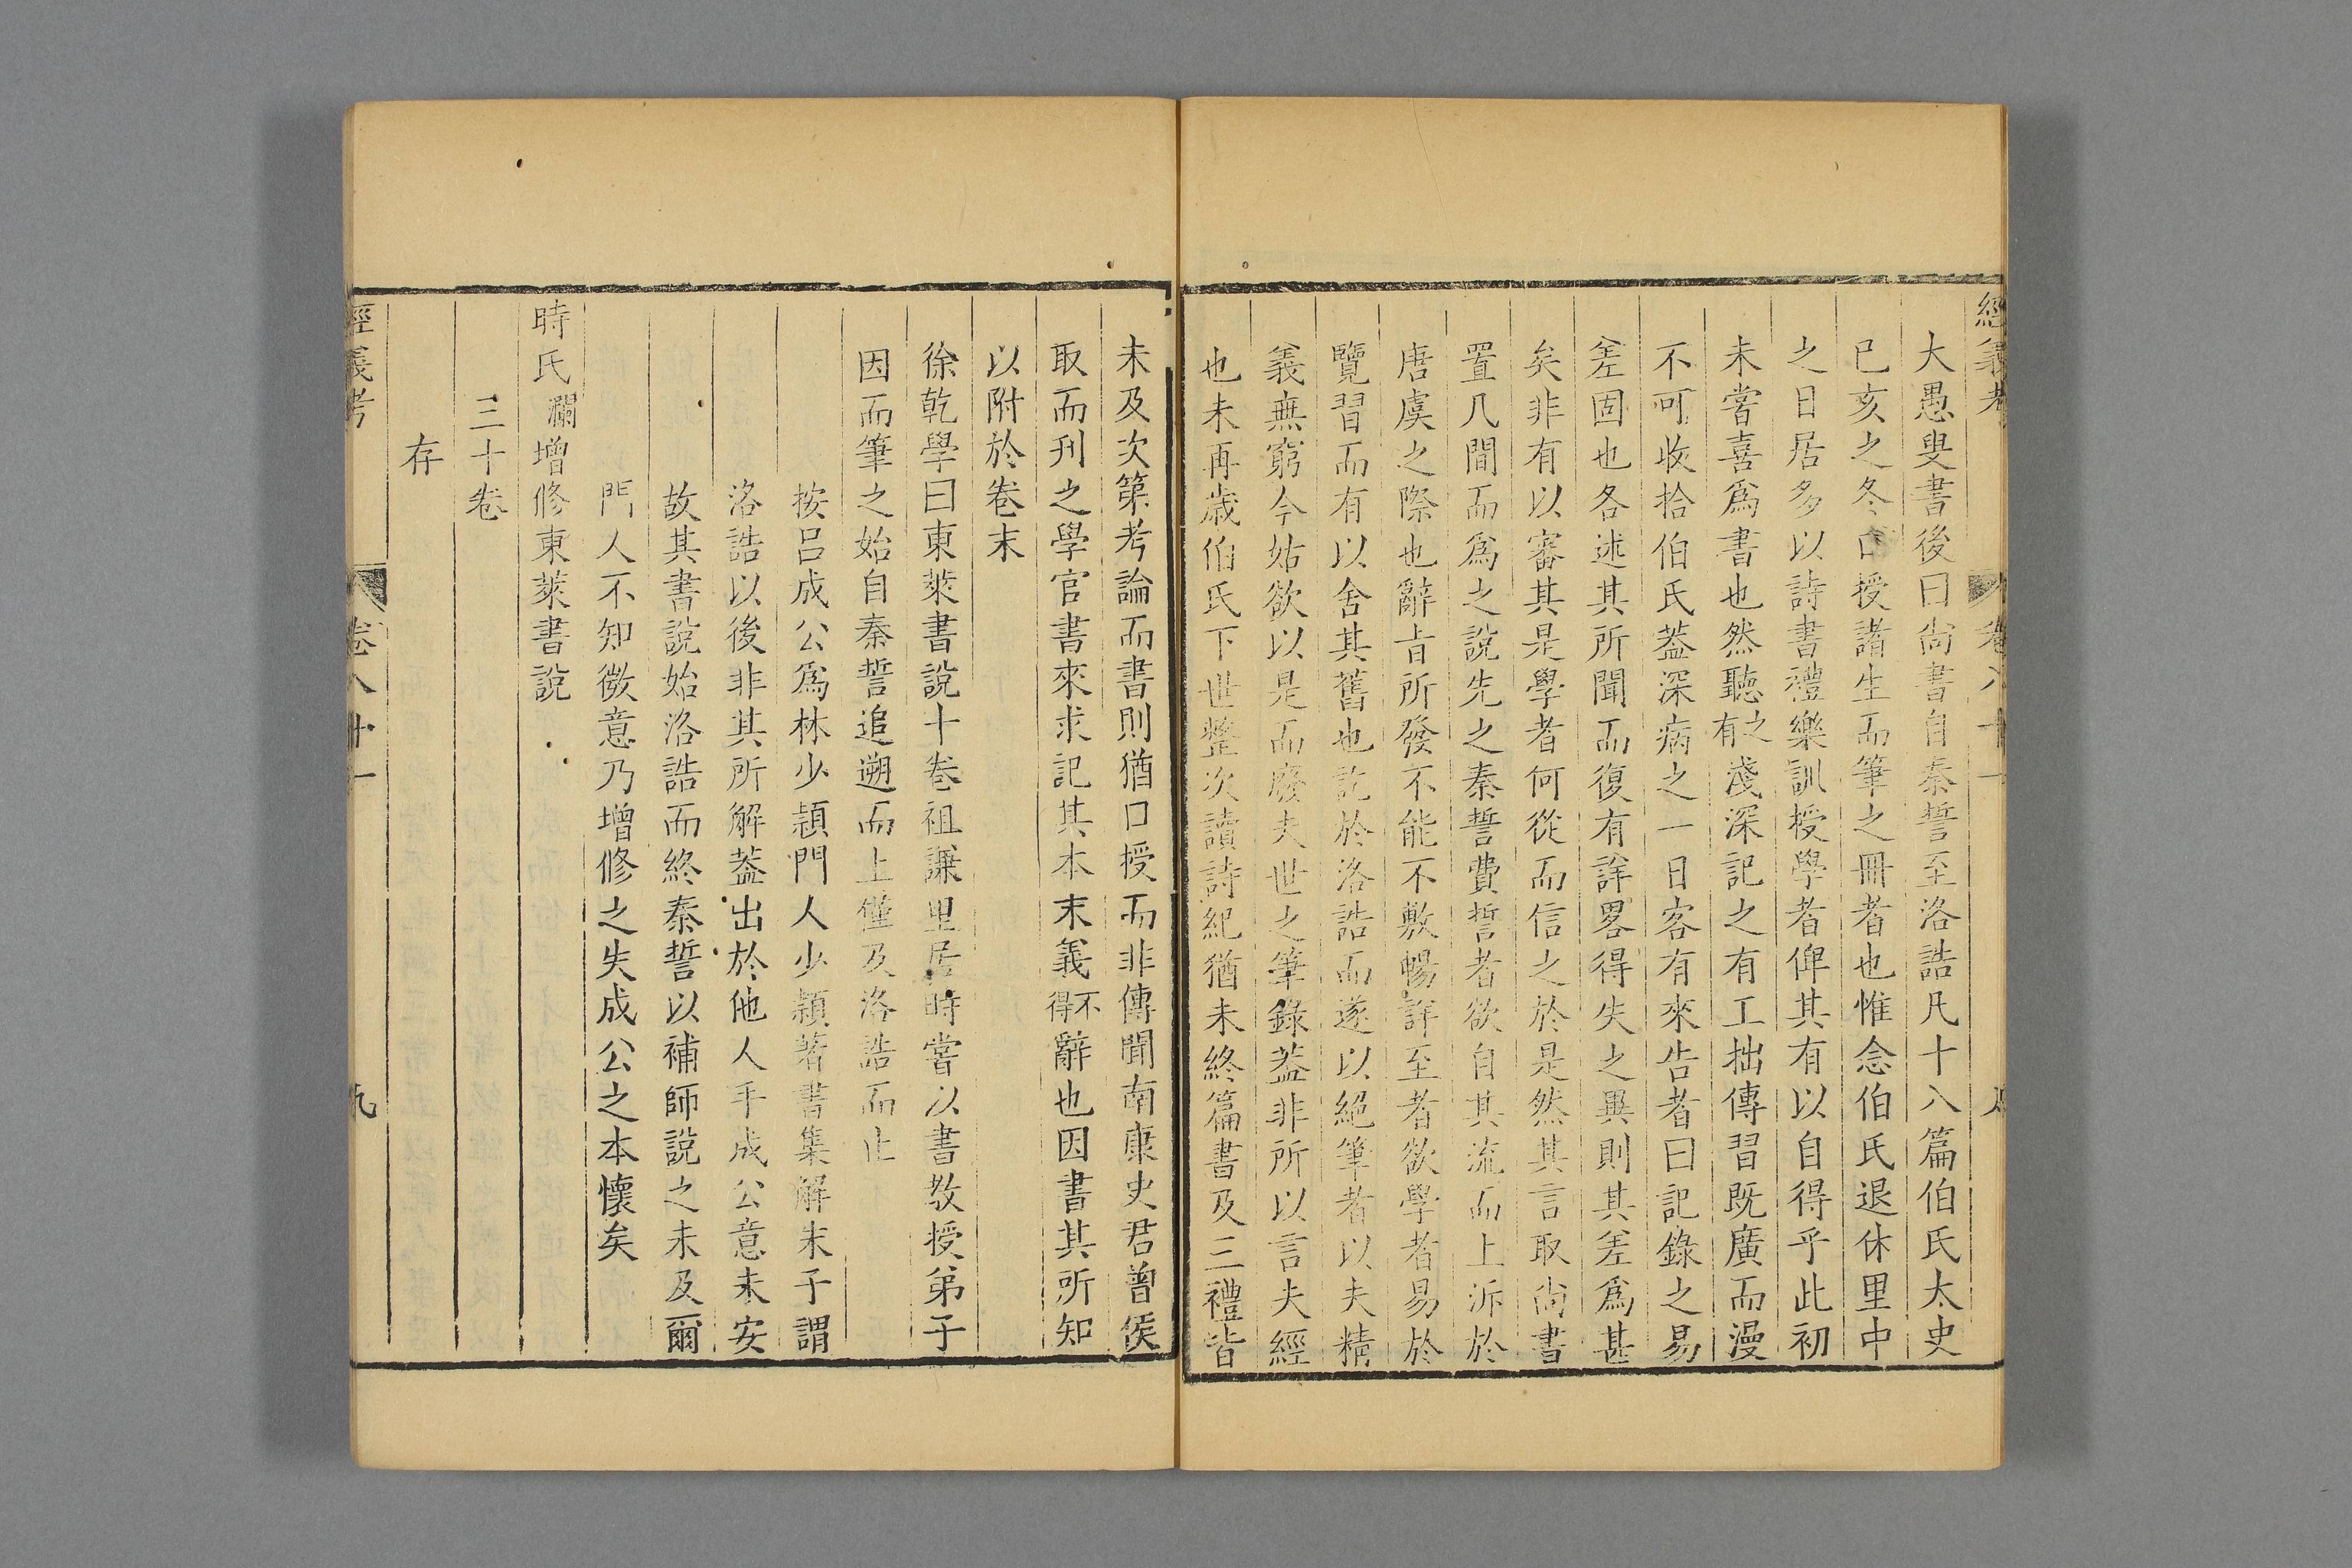 經義考 卷八十一
大愚叟書後曰尚書自秦誓至洛誥凡十八篇伯氏太史
已亥之冬口授諸生而筆之冊者也惟念伯氏退休里中
之日居多以詩書禮樂訓授學者俾其有以自得乎此初
未嘗喜爲書也然聽之有淺深記之有工拙傳習既廣而漫
不可收拾伯氏葢深病之一日客有來告者曰記錄之易
差固也各述其所聞而復有詳畧得失之異則其差爲甚
矣非有以審其是學者何從而信之於是然其言取尚書
置几間而爲之說先之秦誓費誓者欲自其流而上泝於
唐虞之際也辭旨所發不能不敷暢詳至者欲學者易於
覽習而有以舍其舊也訖於洛誥而遂以絕筆者以夫精
義無窮今姑欲以是而廢夫世之筆錄葢非所以言夫經
也未再歲伯氏下世整次讀詩紀猶未終篇書及三禮皆
未及次第考論而書則猶口授而非傳聞南康史君曾侯
取而刋之學官書來求記其本末義不得辭也因書其所知
以附於卷末
徐乾學曰東萊書說十卷祖謙里居時嘗以書教授弟子
因而筆之始自秦誓追遡而上僅及洛誥而止
按呂成公爲林少穎門人少穎著書集解朱子謂
洛誥以後非其所解葢出於他人手成公意未安
故其書說始洛誥而終秦誓以補師說之未及爾
門人不知微意乃增修之失成公之本懷矣
時氏瀾增修東萊書說
三十卷
存
經義考 卷八十一 九